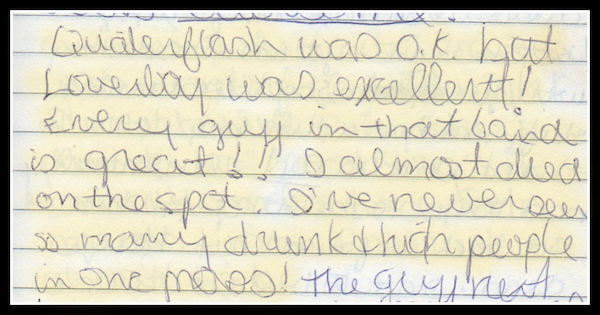 Quaterflash was O.K. but
Loverboy was excellent!
Every guy in that band
is great!!! I almost died
on the spot. I've never seen
so many drunk & high people
in one place! the guy next